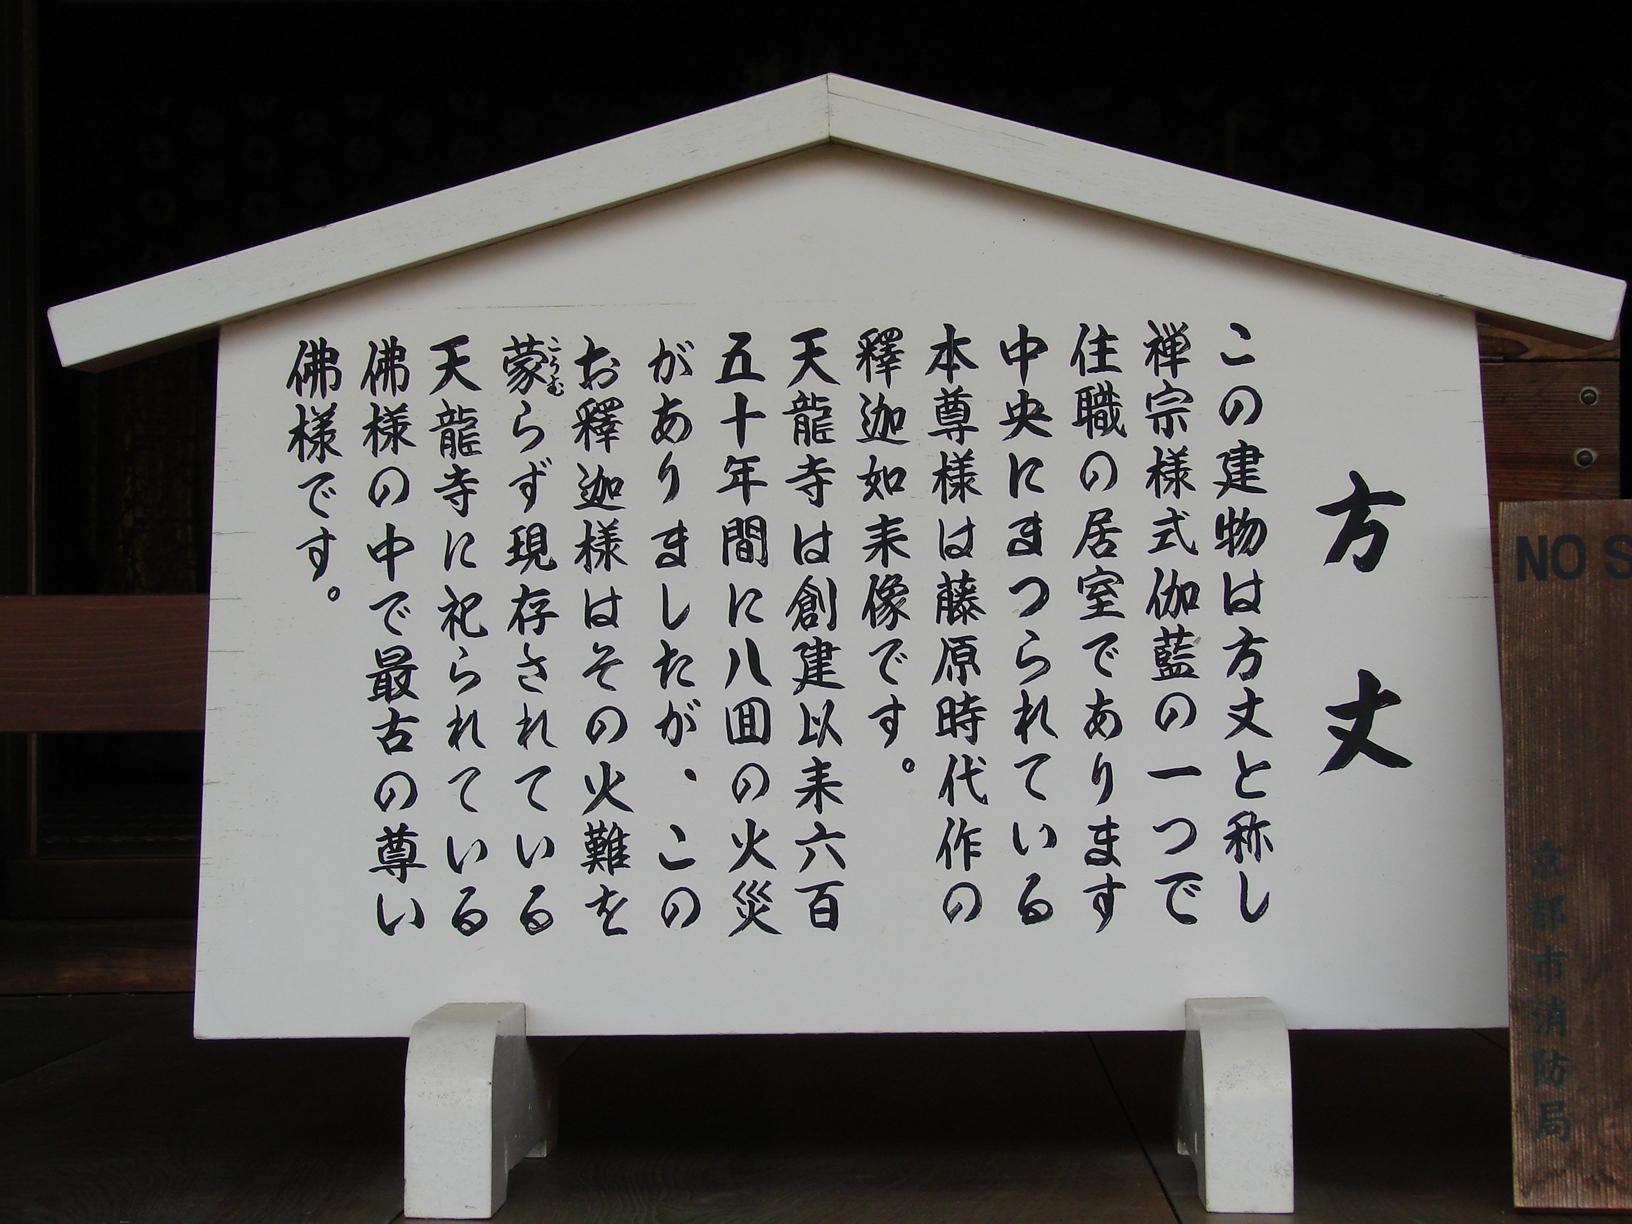 方丈
この建物は方丈と称し
禅宗様式伽藍の一つで
住職の居室であります
中央にまつられている
本尊様は藤原時代作の
釋迦如来像です。
天龍寺は創建以来六百
五十年間に八回の火災
がありましたが、この
お釋迦様はその火難を
蒙らず現存されている
こうむ
天龍寺に祀られている
佛様の中で最古の尊い
佛様です。
NO S
京都市消防局